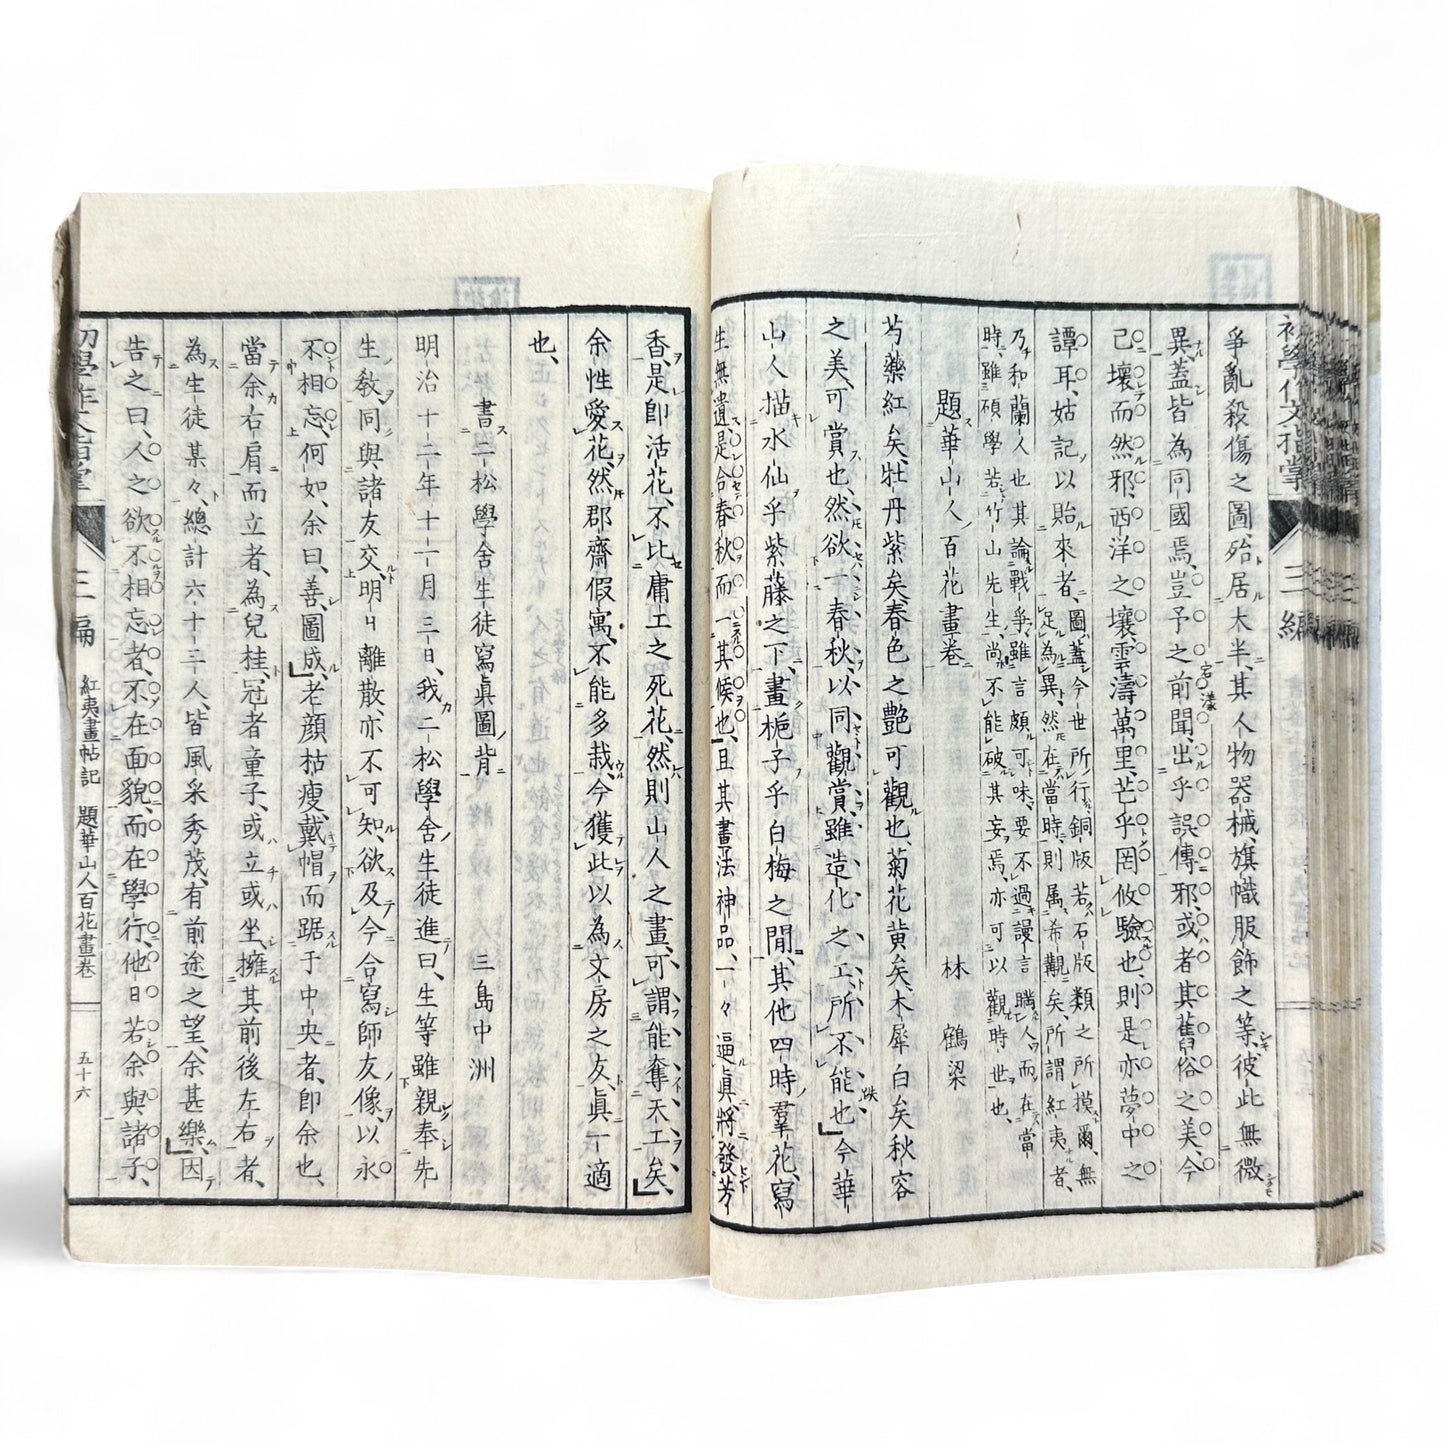 爭亂殺傷之圖、殆居大半、其人物器械、旗幟服飾之等、彼此無微
異、蓋皆為同國焉、豈予之前聞、出乎誤傳邪、或者其舊俗之美、今
已壞而然邪、西洋之壤、雲濤萬里、芒乎罔攸驗也、則是亦夢中之
譚耳、姑記以貽來者、
圖、蓋今世所行銅版若石版類之所摸爾、無
足為異、然在當時、則属希覯矣、所謂紅夷者、
乃和蘭人也、其論戰爭、雖言頗可味、要不過謾言瞞人、而在當
時、雖碩學若竹山先生、尚不能破其妄焉、亦可以觀時世也、
題華山人百花畫卷
林鶴梁
芍藥紅矣、牡丹紫矣、春色之艷可觀也、菊花黃矣、木犀白矣、秋容
之美、可賞也、然欲一春秋、以同觀賞、雖造化之工、所不能也、今華
山人描水仙乎紫藤之下、畫梔子乎白梅之間、其他四時羣花、寫
生無遺、是合春秋而一其候也、且其書法神品、一々逼眞、將發芳
初學作文指掌
三編
香、是卽活花、不比庸工之死花、然則山人之畫、可謂能奪天工矣、
余性愛花、然郡齋假寓、不能多栽、今獲此以為文房之友、眞一適
也、
書二松學舍生徒寫眞圖背
三島中洲
明治十二年十一月三日、我二松學舍生徒進曰、生等雖親奉先
生敎、同與諸友交、明日離散、亦不可知、欲及今合寫師友像、以永
不相忘、何如、余曰、善、圖成、老顏枯瘦、戴帽而踞于中央者、卽余也、
當余右肩而立者、為兒桂、冠者童子、或立或坐、擁其前後左右者、
為生徒某々、總計六十三人、皆風采秀茂、有前途之望、余甚樂、因
告之曰、人之欲不相忘者、不在面貌、而在學行、他日若余與諸子、
初學作文指掌
三編
紅夷畫帖記 題華山人百花畫卷
五十六